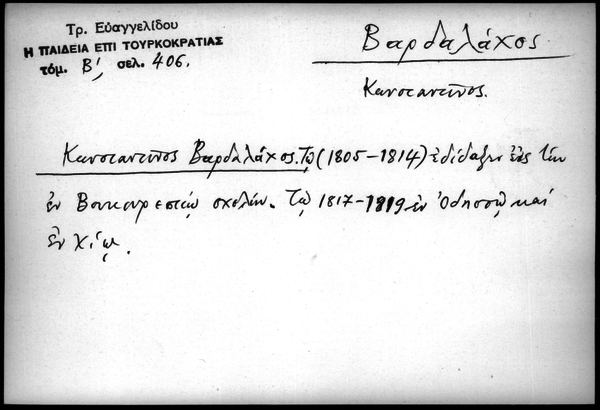 Τρ. Εὐαγγελίδου
Η ΠΑΙΔΕΙΑ ΕΠΙ ΤΟΥΡΚΟΚΡΑΤΙΑΣ
τόμ. Β', σελ. 406.
Βαρδαλάχος
Κωνσταντῖνος.
Κωνσταντῖνος Βαρδαλάχος. Τῷ (1805-1814) ἐδίδαξεν εἰς τὴν
ἐν Βουκουρεστίῳ σχολήν. Τῷ 1817-1819 ἐν Ὀδησσῷ καί
ἐν Χίῳ.